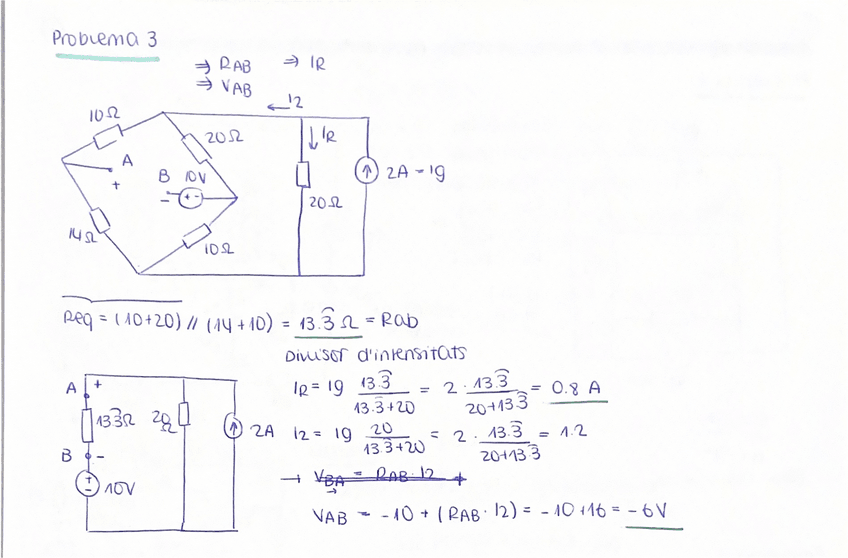 Problema 3
⇒ RAB ⇒ IR
⇒ VAB
← I2
10Ω
20Ω
↓ IR
A
+
B 10V
-
+ -
2A = Ig
20Ω
14Ω
10Ω
Req = (10+20) // (14+10) = 13.3̂ Ω = Rab
Divisor d'intensitats
A +
IR = Ig 13.3̂ / 13.3̂+20 = 2 · 13.3̂ / 20+13.3̂ = 0.8 A
13.3̂Ω
20Ω
2A
I2 = Ig 20 / 13.3̂+20 = 2 · 13.3̂ / 20+13.3̂ = 1.2
B -
→ VBA = RAB · I2
+
-
10V
VAB = -10 + (RAB · I2) = -10 + 16 = -6V